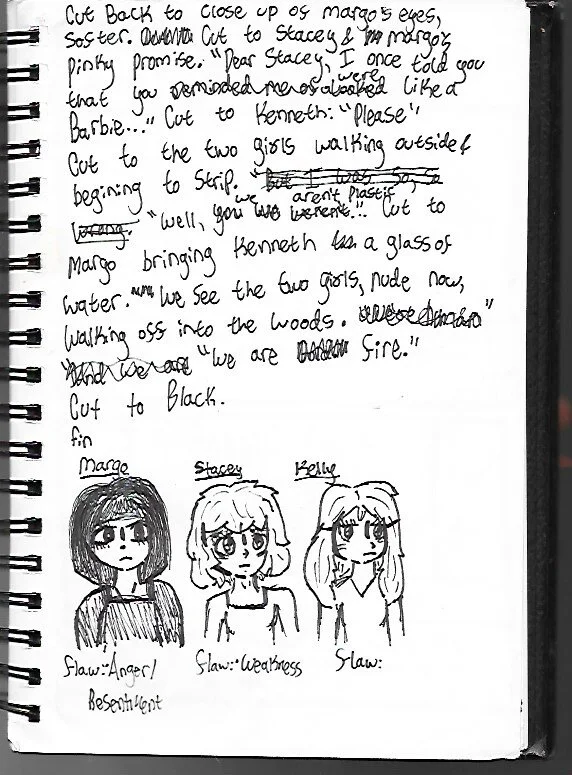 Cut Back to close up of margo's eyes,
softer. Cut to Stacey & margo's
pinky promise. "Dear Stacey, I once told you
that you reminded me of looked were like a
Barbie..." Cut to Kenneth: "Please"
Cut to the two girls walking outside &
begining to strip. "but I was so, so
wrong. "Well, you we weren't aren't plastic..." Cut to
Margo bringing Kenneth a glass of
water. We see the two girls, nude now,
walking off into the woods.
"And we are "We are fire."
Cut to Black.
fin
Margo Stacey Kelly
flaw: Anger/ flaw: Weakness flaw:
Resentment